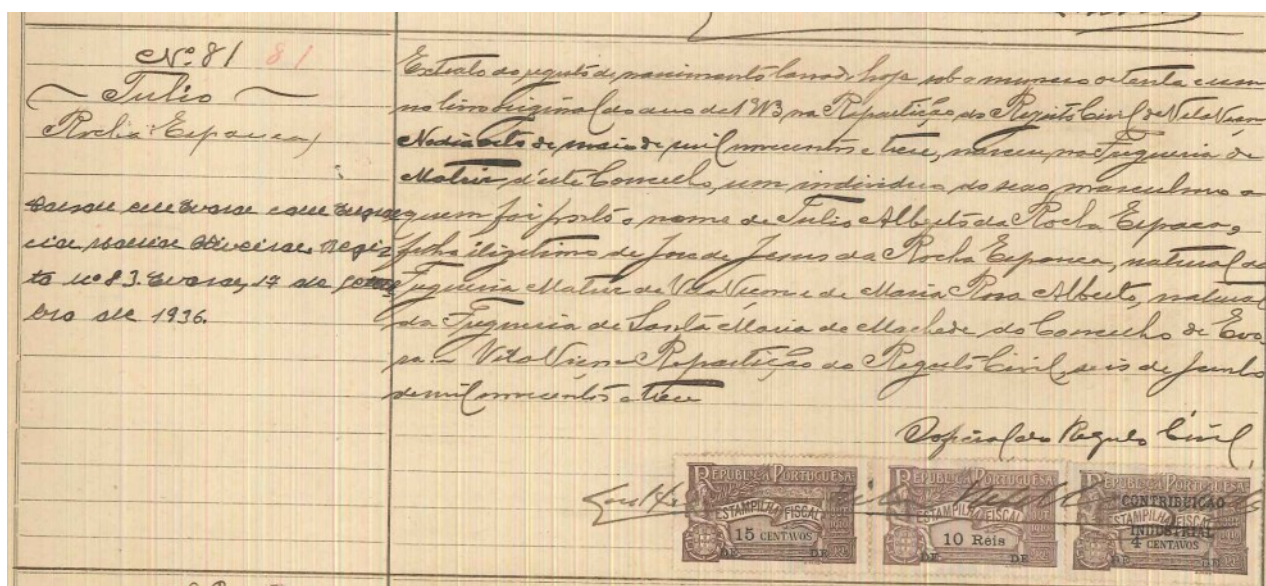 Nº 81 81
Tulio
Rocha Espanca
Casou em Evora com Eugu
cia Maria Oliveira. Regis
to nº 83. Evora, 17 de setem
bro de 1936.
Extrato do registo de nascimento lavrado hoje sob o numero oitenta e um
no livro original do ano de 1913 na Repartição do Registo Civil de Vila Viçosa
No dia oito de maio de mil novecentos e treze, nasceu na Freguesia de
Matriz, d'este Concelho, um individuo do sexo masculino a
quem foi posto o nome de Tulio Alberto da Rocha Espanca,
filho ilegitimo de José de Jesus da Rocha Espanca, natural da
Freguesia Matriz de Vila Viçosa e de Maria Rosa Alberto, natural
da Freguesia de Santa Maria de Machede do Concelho de Evo
ra. - Vila Viçosa Repartição do Registo Civil, seis de Junho
de mil novecentos e treze
O oficial do Registo Civil,
REPUBLICA PORTUGUESA REPUBLICA PORTUGUESA REPUBLICA PORTUGUESA
ESTAMPILHA FISCAL ESTAMPILHA FISCAL ESTAMPILHA FISCAL
CONTRIBUIÇÃO
INDUSTRIAL
15 CENTAVOS 10 Réis 4 CENTAVOS
DE DE DE DE DE DE